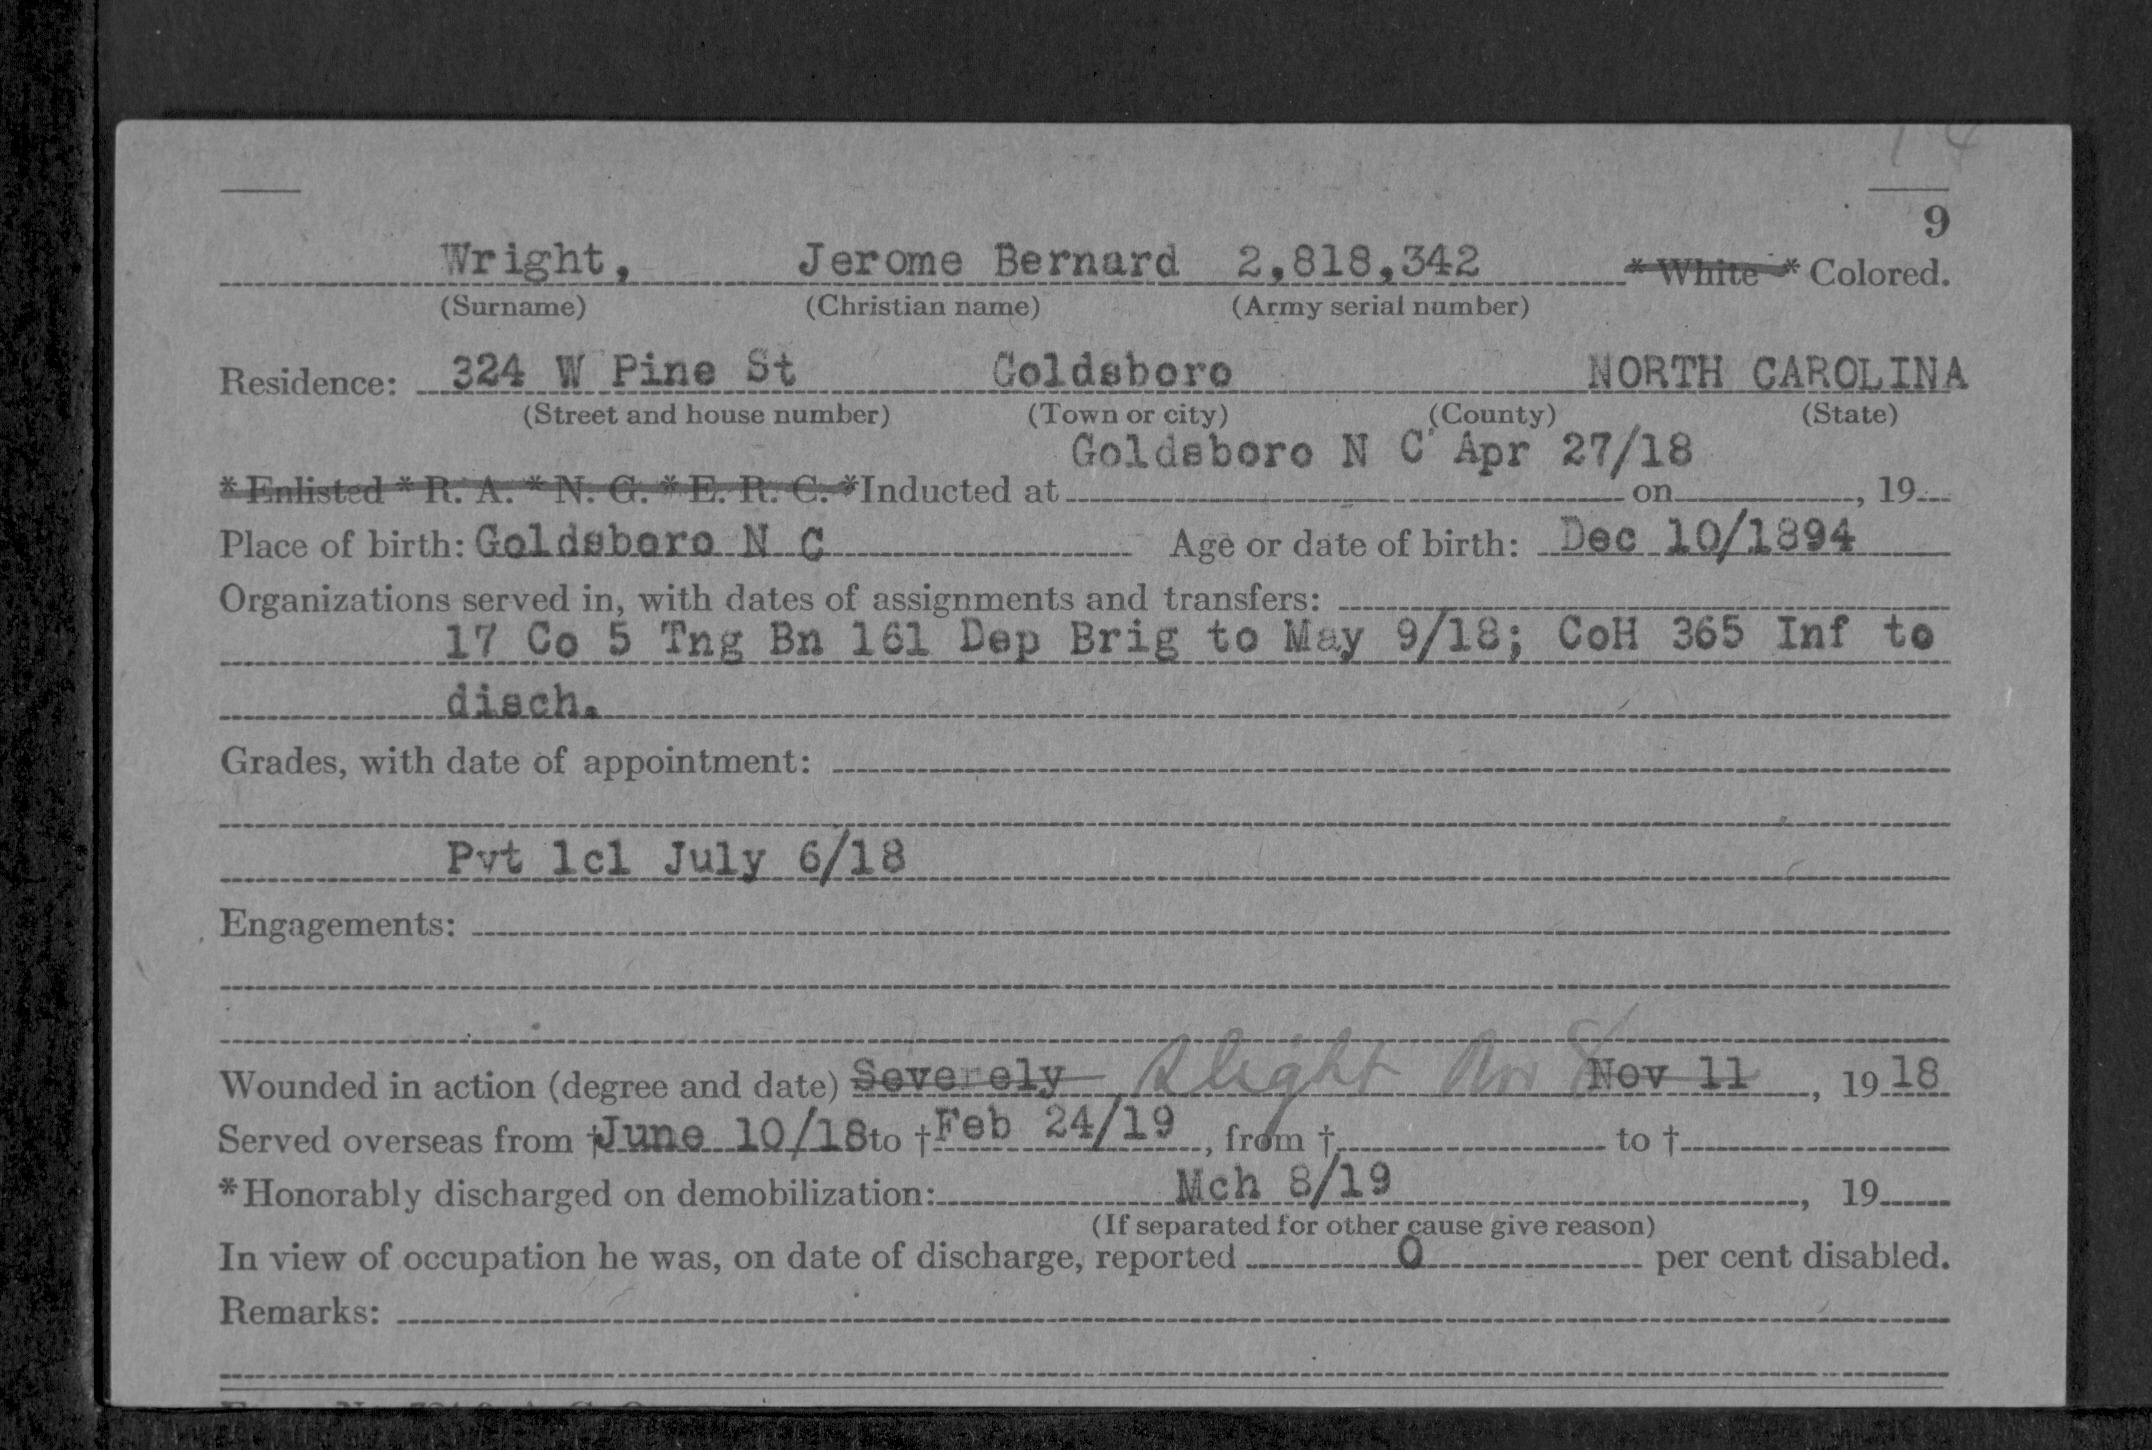 9
Wright, Jerome Bernard 2,818,342 * White * Colored.
(Surname) (Christian name) (Army serial number)
Residence: 324 W Pine St Goldsboro NORTH CAROLINA
(Street and house number) (Town or city) (County) (State)
Goldsboro N C Apr 27/18
* Enlisted * R. A. * N. G. * E. R. C. * Inducted at on , 19
Place of birth: Goldsboro N C Age or date of birth: Dec 10/1894
Organizations served in, with dates of assignments and transfers:
17 Co 5 Tng Bn 161 Dep Brig to May 9/18; CoH 365 Inf to
disch.
Grades, with date of appointment:
Pvt 1cl July 6/18
Engagements:
Wounded in action (degree and date) Severely Slight Nov 11, 1918
Served overseas from † June 10/18 to † Feb 24/19, from † to †
* Honorably discharged on demobilization: Mch 8/19, 19
(If separated for other cause give reason)
In view of occupation he was, on date of discharge, reported 0 per cent disabled.
Remarks: